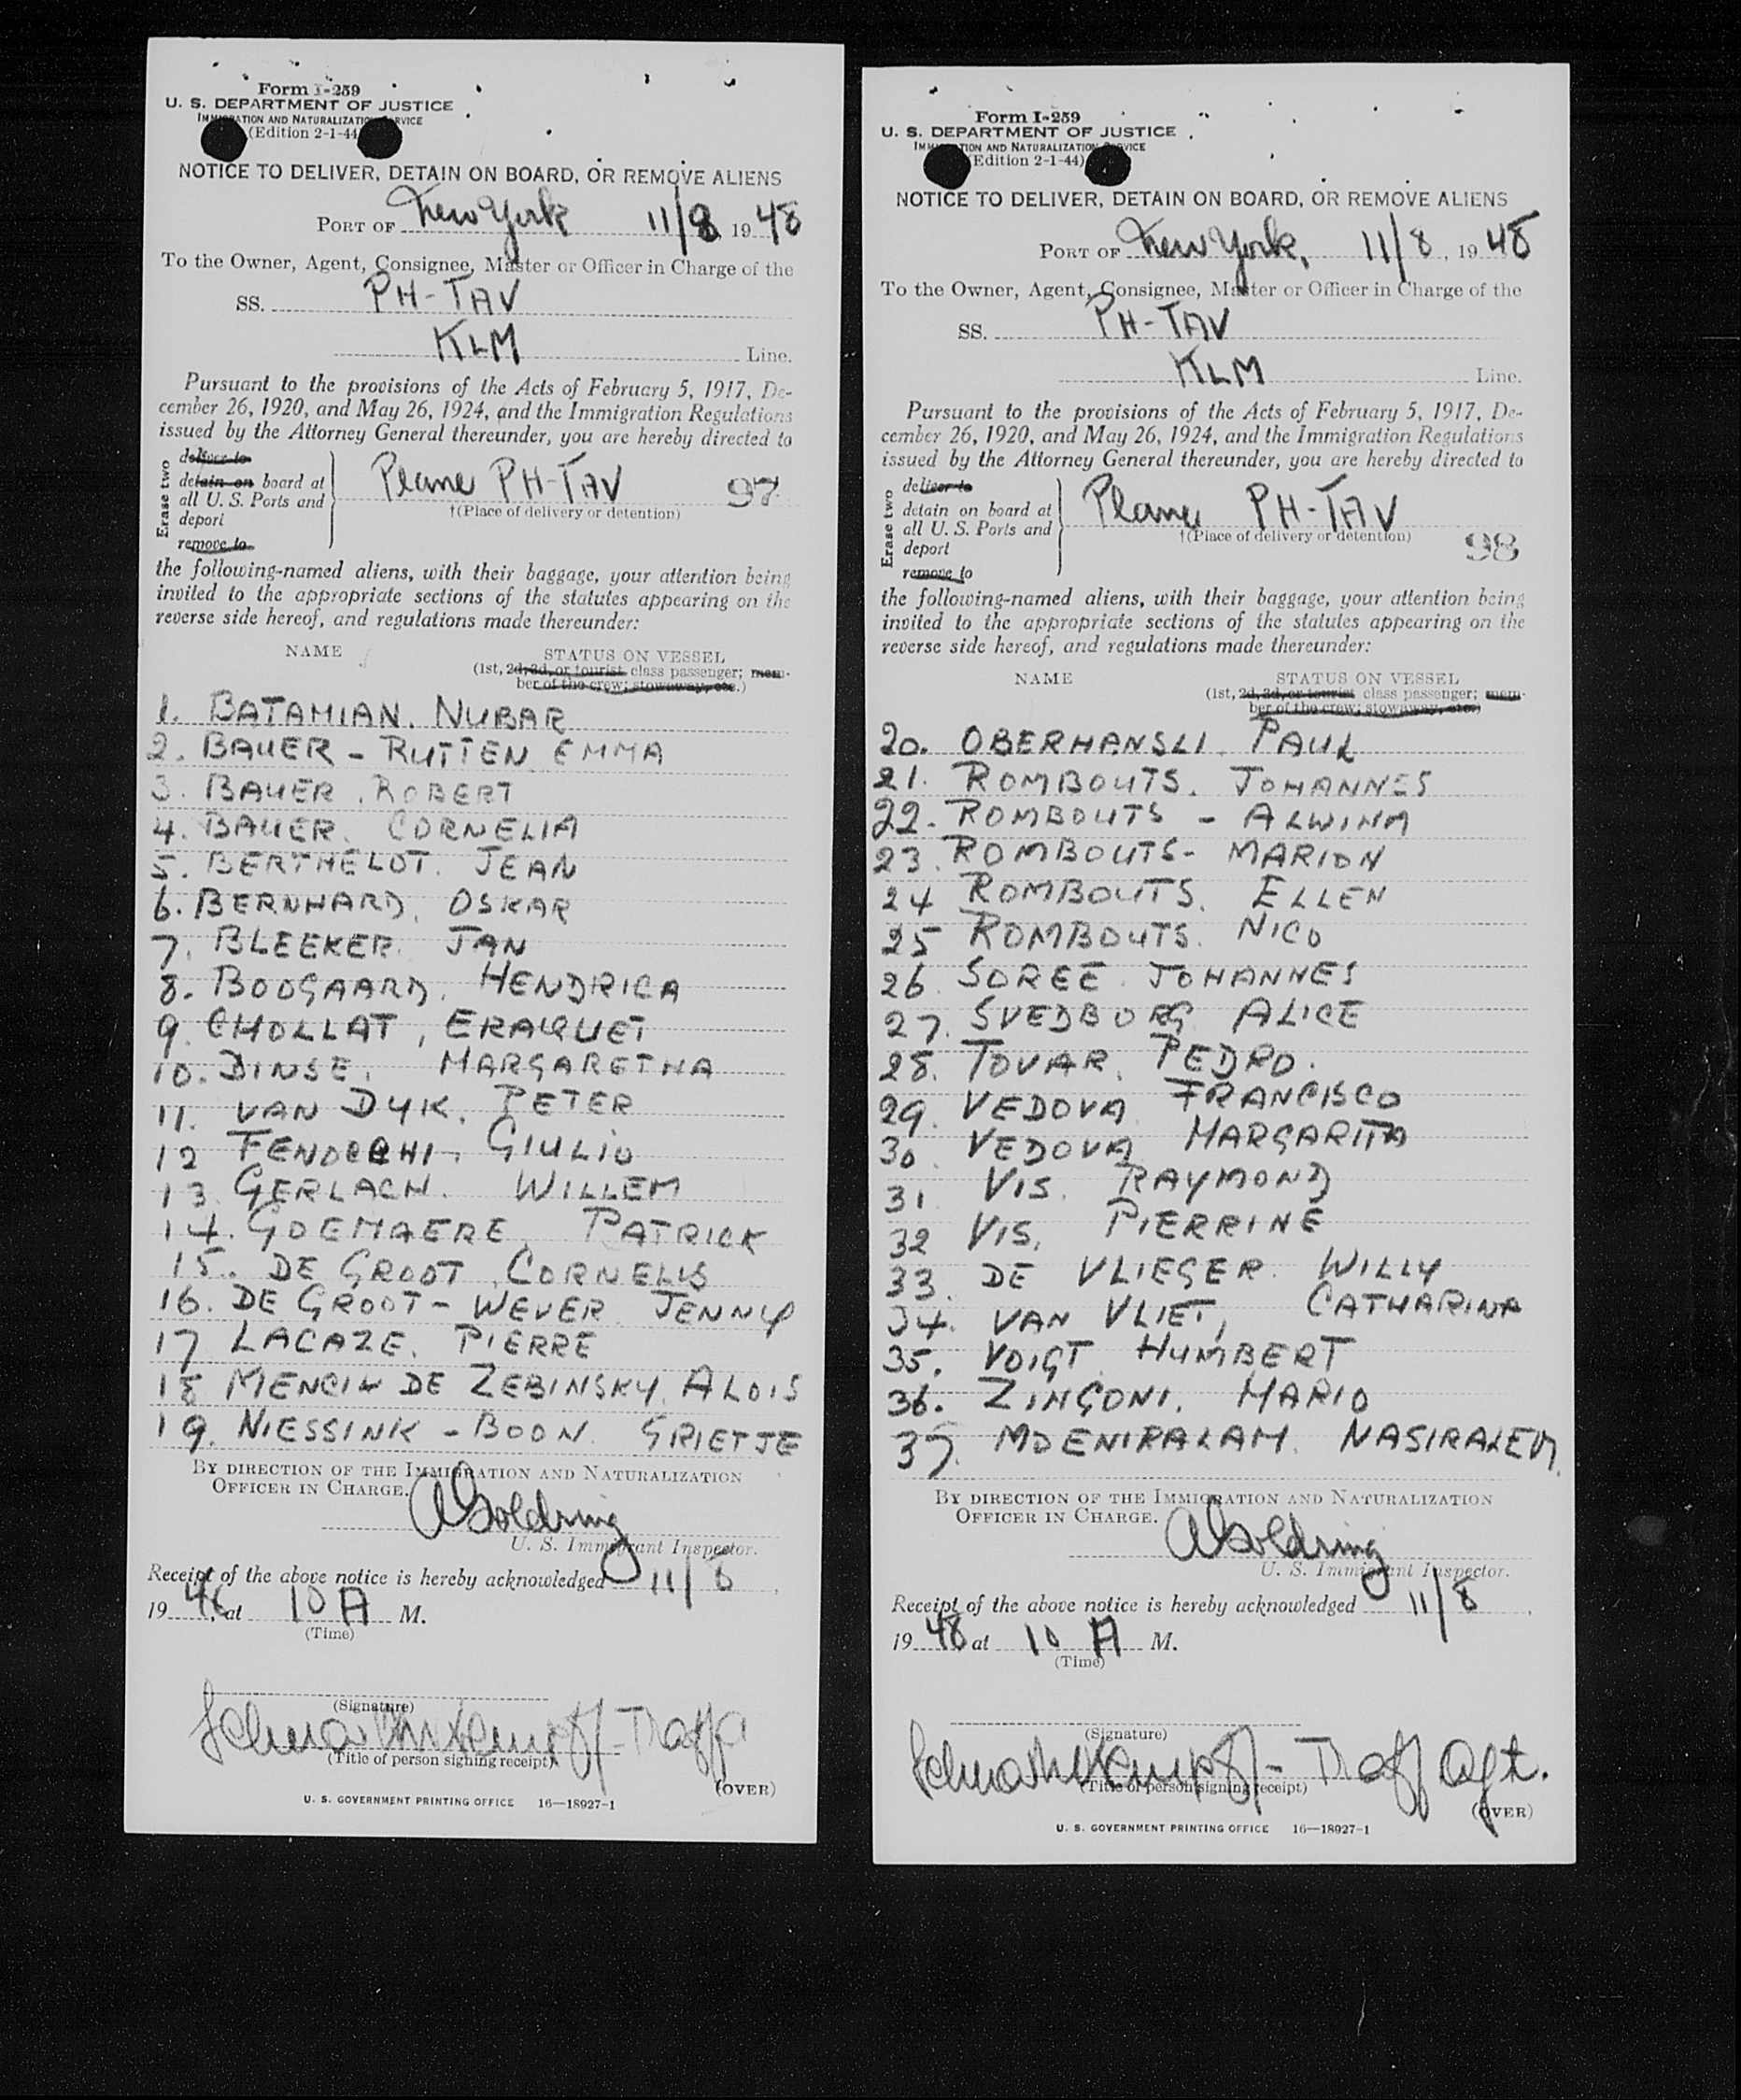 Form I-259
U. S. DEPARTMENT OF JUSTICE
IMMIGRATION AND NATURALIZATION SERVICE
(Edition 2-1-44)
NOTICE TO DELIVER, DETAIN ON BOARD, OR REMOVE ALIENS
PORT OF New York 11/8, 1948
To the Owner, Agent, Consignee, Master or Officer in Charge of the
SS. PH-TAV
KLM Line.
Pursuant to the provisions of the Acts of February 5, 1917, De-
cember 26, 1920, and May 26, 1924, and the Immigration Regulations
issued by the Attorney General thereunder, you are hereby directed to
Erase two
deliver to
detain on board at
all U. S. Ports and
deport
remove to
Plane PH-TAV 97
†(Place of delivery or detention)
the following-named aliens, with their baggage, your attention being
invited to the appropriate sections of the statutes appearing on the
reverse side hereof, and regulations made thereunder:
NAME STATUS ON VESSEL
(1st, 2d, 3d, or tourist class passenger; mem-
ber of the crew; stowaway, etc.)
1. BATAMIAN. NUBAR
2. BAUER - RUTTEN EMMA
3. BAUER, ROBERT
4. BAUER. CORNELIA
5. BERTHELOT. JEAN
6. BERNHARD, OSKAR
7. BLEEKER. JAN
8. BOOGAARD, HENDRICA
9. CHOLLAT, ERAQUET
10. DINSE, MARGARETHA
11. VAN DYK, PETER
12 FENOCCHI, GIULIO
13. GERLACH. WILLEM
14. GOEMAERE, PATRICK
15. DE GROOT, CORNELIS
16. DE GROOT - WEVER JENNY
17 LACAZE. PIERRE
18 MENCIK DE ZEBINSKY, ALOIS
19. NIESSINK - BOON. GRIETJE
BY DIRECTION OF THE IMMIGRATION AND NATURALIZATION
OFFICER IN CHARGE.
A Goldring
U. S. Immigrant Inspector.
Receipt of the above notice is hereby acknowledged 11/8,
1948, at 10 A M.
(Time)
(Signature)
(Title of person signing receipt)
(OVER)
U. S. GOVERNMENT PRINTING OFFICE 16—18927-1
Form I-259
U. S. DEPARTMENT OF JUSTICE
IMMIGRATION AND NATURALIZATION SERVICE
(Edition 2-1-44)
NOTICE TO DELIVER, DETAIN ON BOARD, OR REMOVE ALIENS
PORT OF New York, 11/8, 1948
To the Owner, Agent, Consignee, Master or Officer in Charge of the
SS. PH-TAV
KLM Line.
Pursuant to the provisions of the Acts of February 5, 1917, De-
cember 26, 1920, and May 26, 1924, and the Immigration Regulations
issued by the Attorney General thereunder, you are hereby directed to
Erase two
deliver to
detain on board at
all U. S. Ports and
deport
remove to
Plane PH-TAV
†(Place of delivery or detention) 98
the following-named aliens, with their baggage, your attention being
invited to the appropriate sections of the statutes appearing on the
reverse side hereof, and regulations made thereunder:
NAME STATUS ON VESSEL
(1st, 2d, 3d, or tourist class passenger; mem-
ber of the crew; stowaway, etc.)
20. OBERHANSLI. PAUL
21. ROMBOUTS. JOHANNES
22. ROMBOUTS - ALWINA
23. ROMBOUTS - MARION
24 ROMBOUTS. ELLEN
25 ROMBOUTS. NICO
26. SOREE. JOHANNES
27. SVEDBORG ALICE
28. TOVAR, PEDRO.
29. VEDOVA FRANCISCO
30. VEDOVA MARGARITA
31 VIS. RAYMOND
32 VIS, PIERRINE
33. DE VLIEGER. WILLY
34. VAN VLIET, CATHARINA
35. VOIGT. HUMBERT
36. ZINGONI. MARIO
37. MOENIRALAM. NASIRALEM.
BY DIRECTION OF THE IMMIGRATION AND NATURALIZATION
OFFICER IN CHARGE.
A Goldring
U. S. Immigrant Inspector.
Receipt of the above notice is hereby acknowledged 11/8,
1948 at 10 A M.
(Time)
(Signature)
Traff Agt.
(Title of person signing receipt)
(OVER)
U. S. GOVERNMENT PRINTING OFFICE 16—18927-1